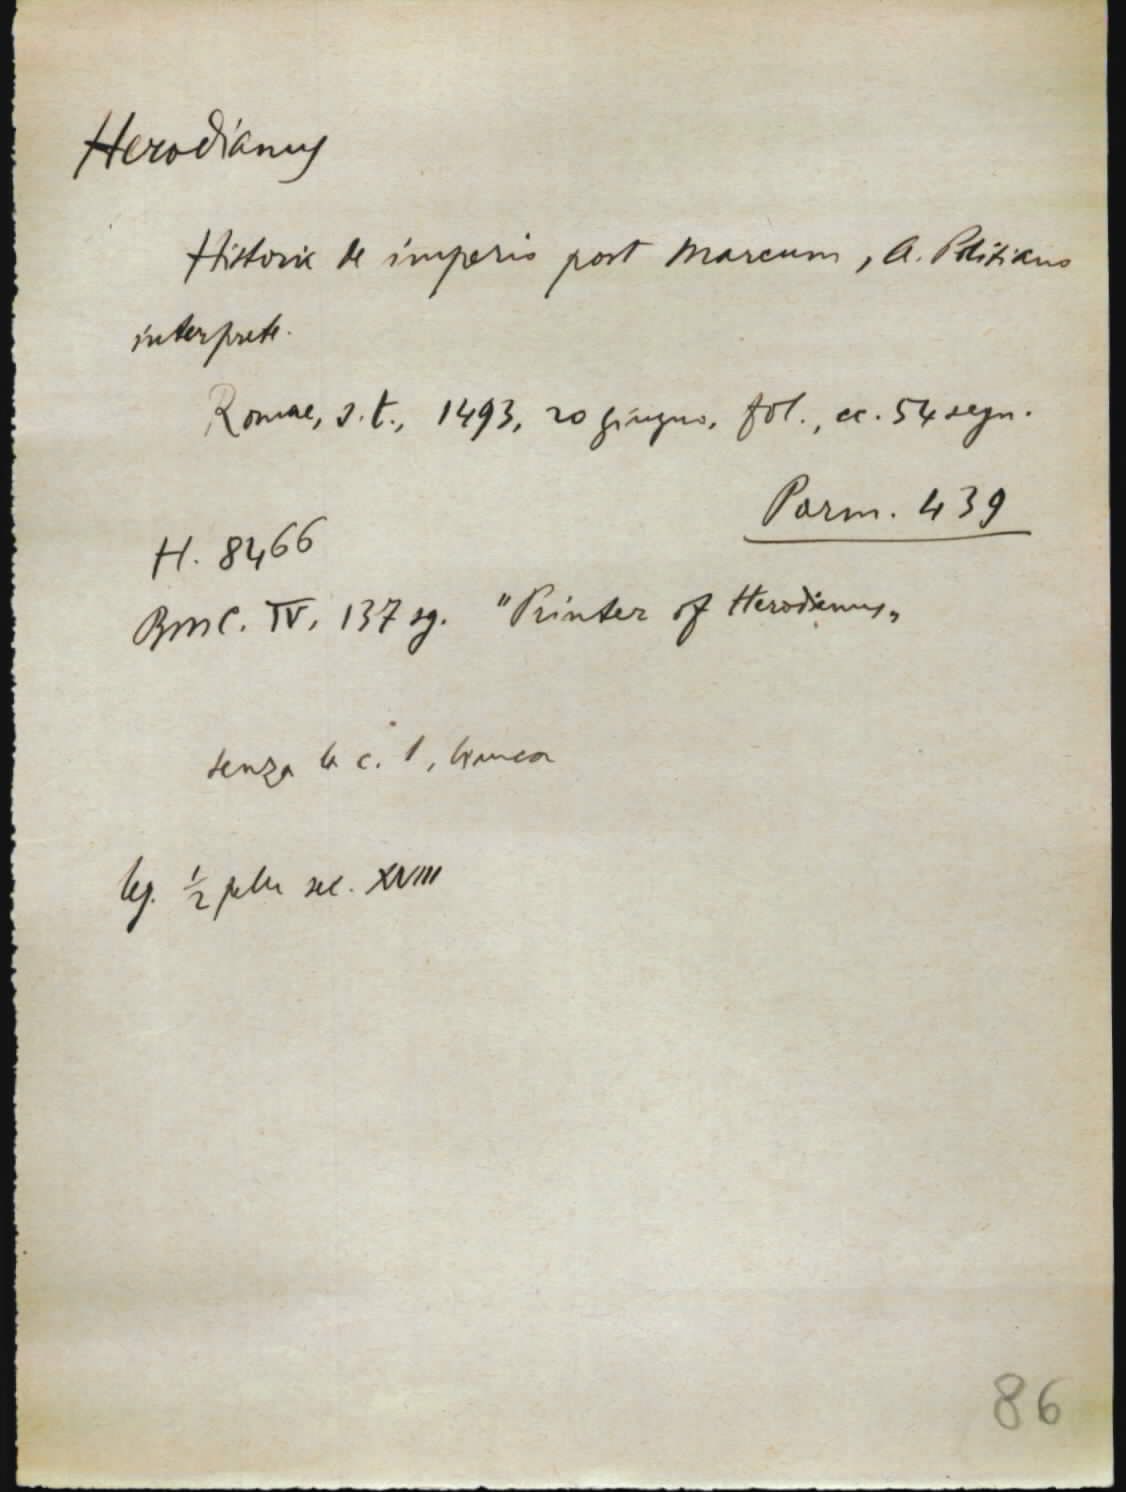 Herodianus
Historie de imperio post Marcum, A. Politiano
interprete.
Romae, s.t., 1493, 20 giugno, fol., cc. 54 segn.
Parm. 439
H. 8466
BMC. IV, 137 sg. "Printer of Herodianus"
senza la c. 1, bianca
leg. ½ pelle sec. XVIII
86